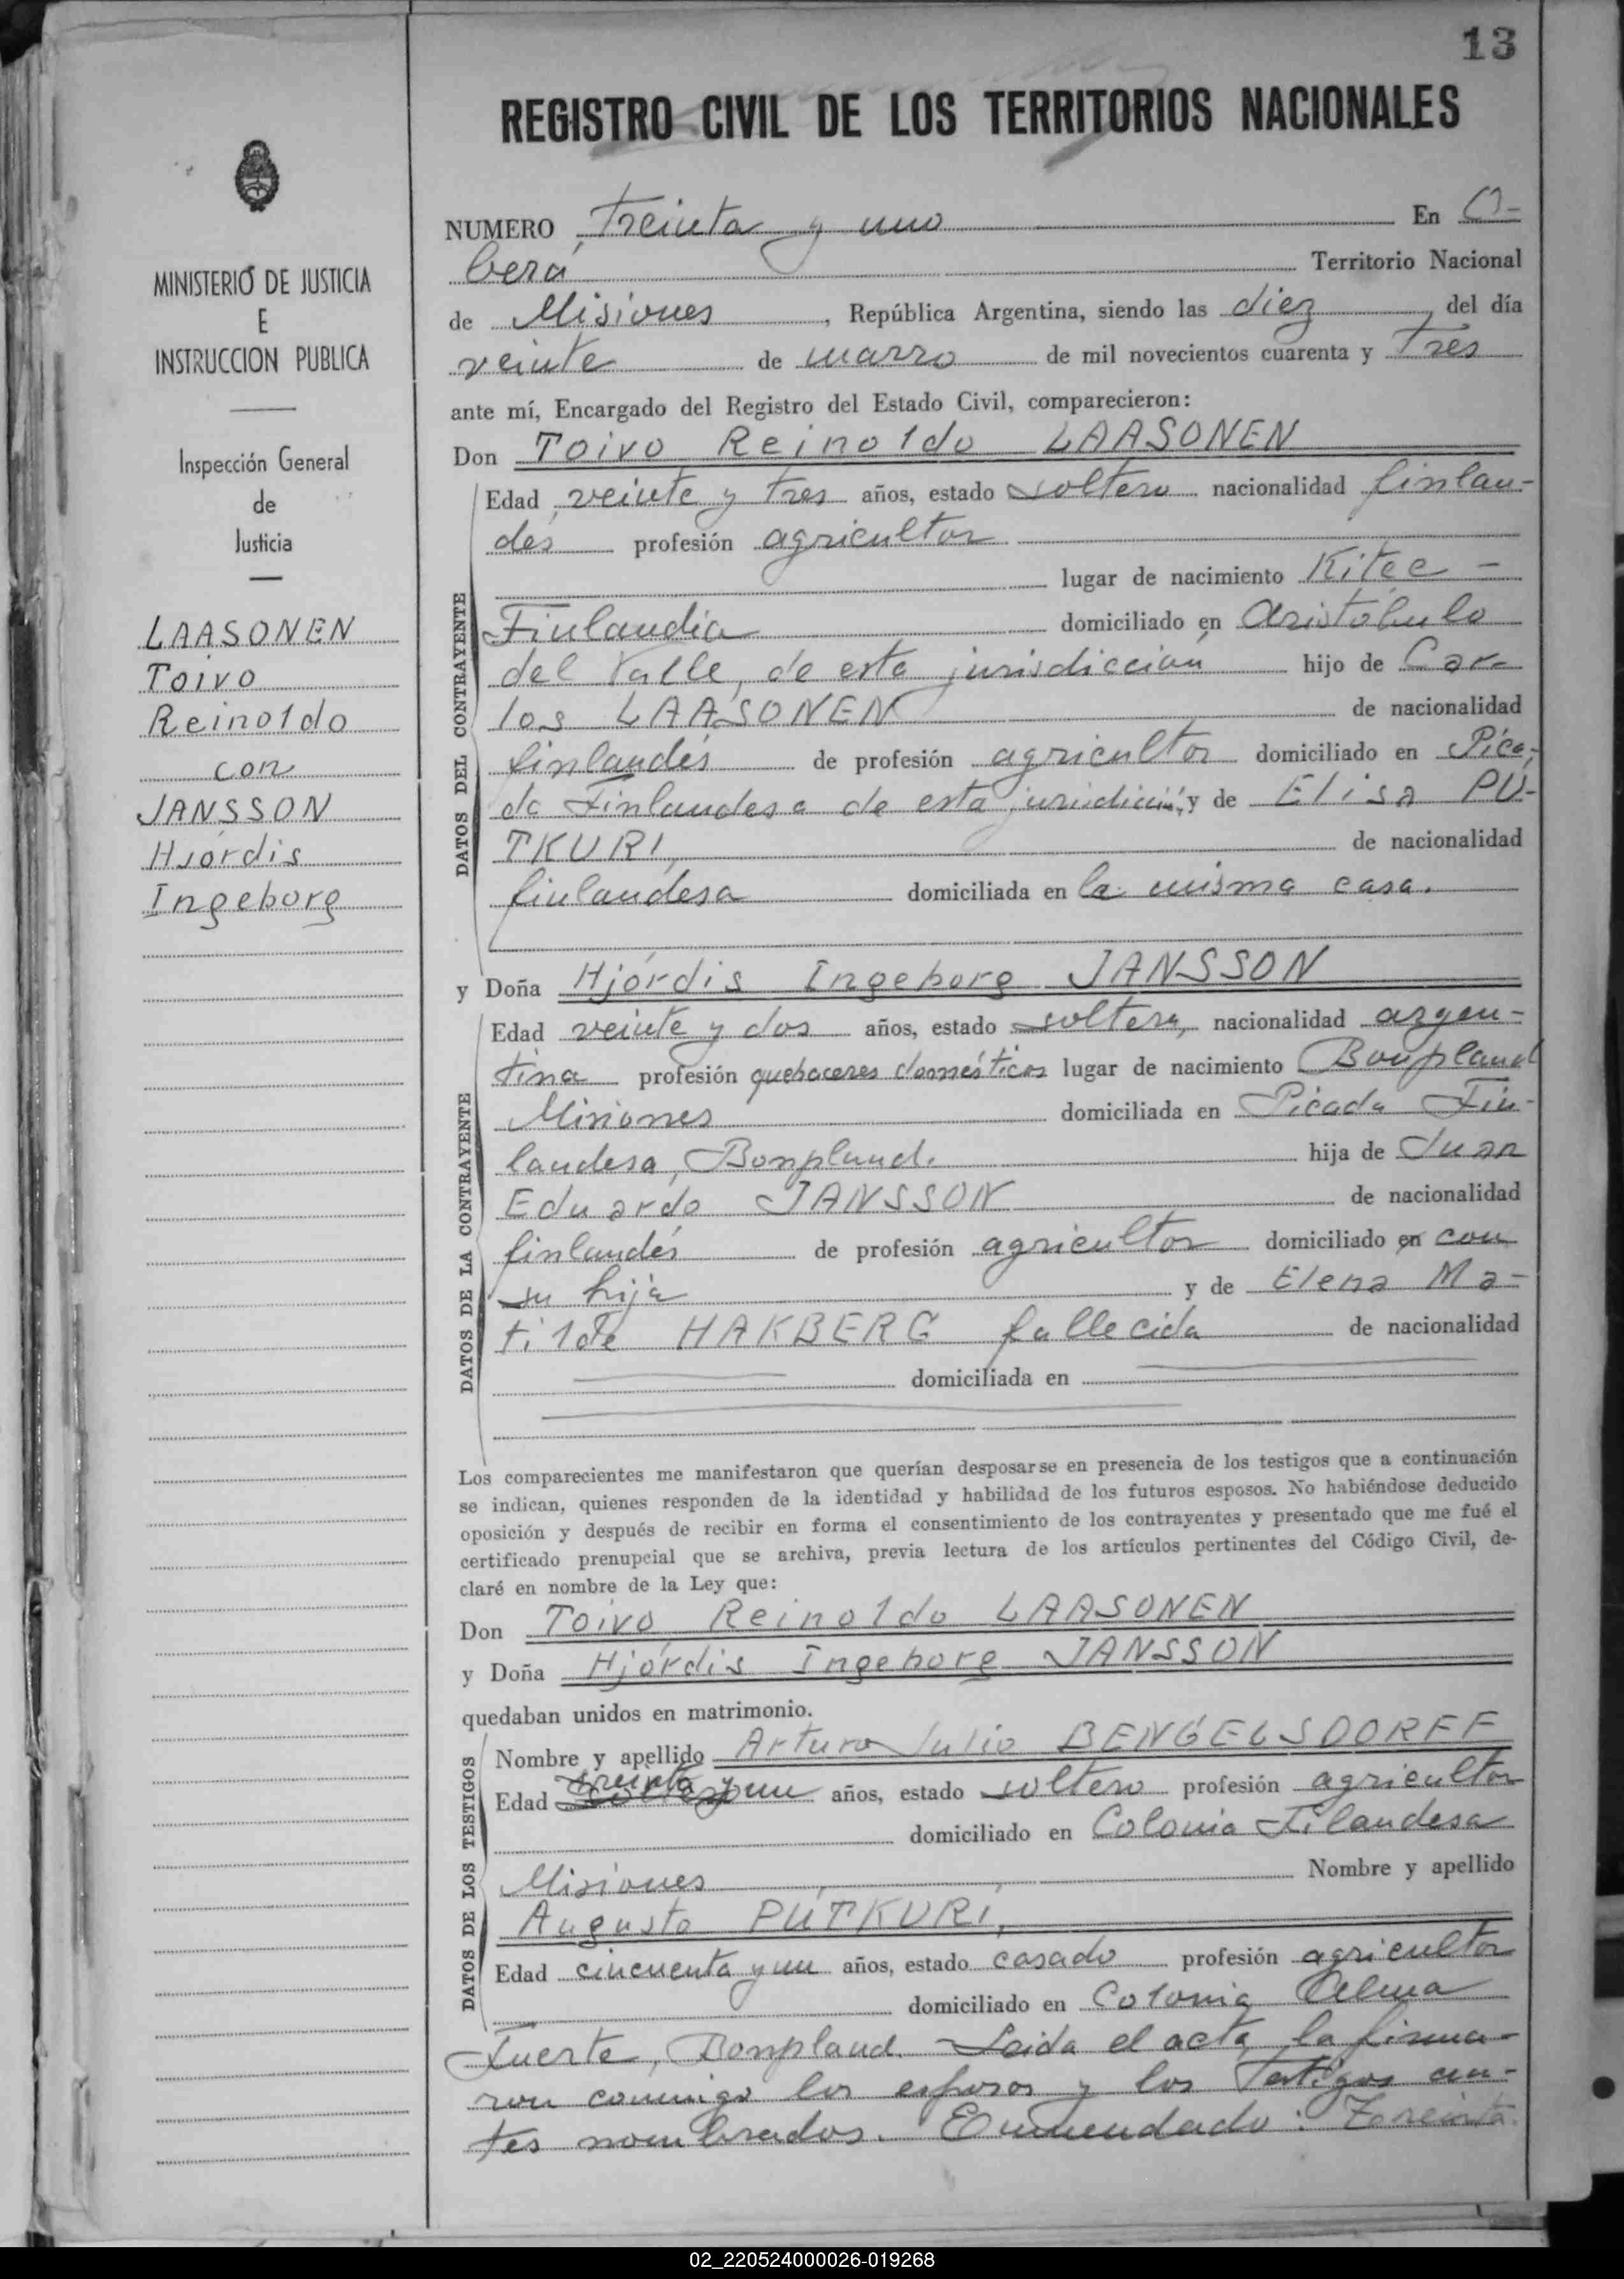 13
REGISTRO CIVIL DE LOS TERRITORIOS NACIONALES
MINISTERIO DE JUSTICIA
E
INSTRUCCION PUBLICA
Inspección General
de
Justicia
LAASONEN
Toivo
Reinoldo
con
JANSSON
Hjórdis
Ingeborg
NUMERO Treinta y uno En O-
berá Territorio Nacional
de Misiones, República Argentina, siendo las diez, del día
veinte de marzo de mil novecientos cuarenta y tres
ante mí, Encargado del Registro del Estado Civil, comparecieron:
Don Toivo Reinoldo LAASONEN
DATOS DEL CONTRAYENTE
Edad veinte y tres años, estado soltero nacionalidad finlan-
dés profesión agricultor
lugar de nacimiento Kitee -
Finlandia domiciliado en Aristóbulo
del Valle, de esta jurisdicción hijo de Car-
los LAASONEN de nacionalidad
finlandés de profesión agricultor domiciliado en Pica-
da Finlandesa de esta jurisdicción, y de Elisa PU-
TKURI, de nacionalidad
finlandesa domiciliada en la misma casa.
y Doña Hjórdis Ingeborg JANSSON
DATOS DE LA CONTRAYENTE
Edad veinte y dos años, estado soltera, nacionalidad argen-
tina profesión quehaceres domésticos lugar de nacimiento Bonpland
Misiones domiciliada en Picada Fin-
landesa, Bonpland. hija de Juan
Eduardo JANSSON de nacionalidad
finlandés de profesión agricultor domiciliado en con
su hija y de Elena Ma-
tilde HAKBERG fallecida de nacionalidad
domiciliada en
Los comparecientes me manifestaron que querían desposarse en presencia de los testigos que a continuación
se indican, quienes responden de la identidad y habilidad de los futuros esposos. No habiéndose deducido
oposición y después de recibir en forma el consentimiento de los contrayentes y presentado que me fué el
certificado prenupcial que se archiva, previa lectura de los artículos pertinentes del Código Civil, de-
claré en nombre de la Ley que:
Don Toivo Reinoldo LAASONEN
y Doña Hjórdis Ingeborg JANSSON
quedaban unidos en matrimonio.
DATOS DE LOS TESTIGOS
Nombre y apellido Arturo Julio BENGELSDORFF
Edad treinta y un años, estado soltero profesión agricultor
domiciliado en Colonia Filandesa
Misiones Nombre y apellido
Augusto PUTKURI,
Edad cincuenta y un años, estado casado profesión agricultor
domiciliado en Colonia Alma
Fuerte, Bonpland. Leida el acta, la firma-
ron conmigo los esposos y los testigos an-
tes nombrados. Enmendado: Treinta.
02_220524000026-019268